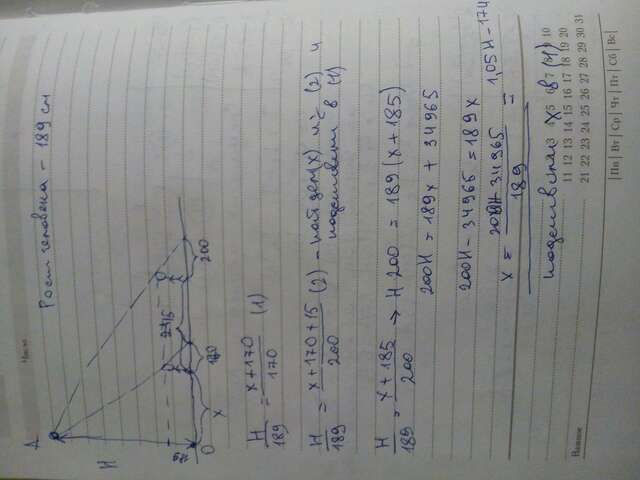 Число
Рост человека - 189 см
A
H
0
x
170
200
H/189 = x+170/170 (1)
H/189 = x+170+15/200 (2) - найдем (x) из (2) и
подставим в (1)
H/189 = x+185/200 → H 200 = 189 (x+185)
200H = 189x + 34965
200H - 34965 = 189x
x = 200H - 34965/189 = 1,05H - 174
подставим x в (1)
Важное
11 12 13 14 15 16 17 18 19 20
21 22 23 24 25 26 27 28 29 30 31
|Пн|Вт|Ср|Чт|Пт|Сб|Вс|